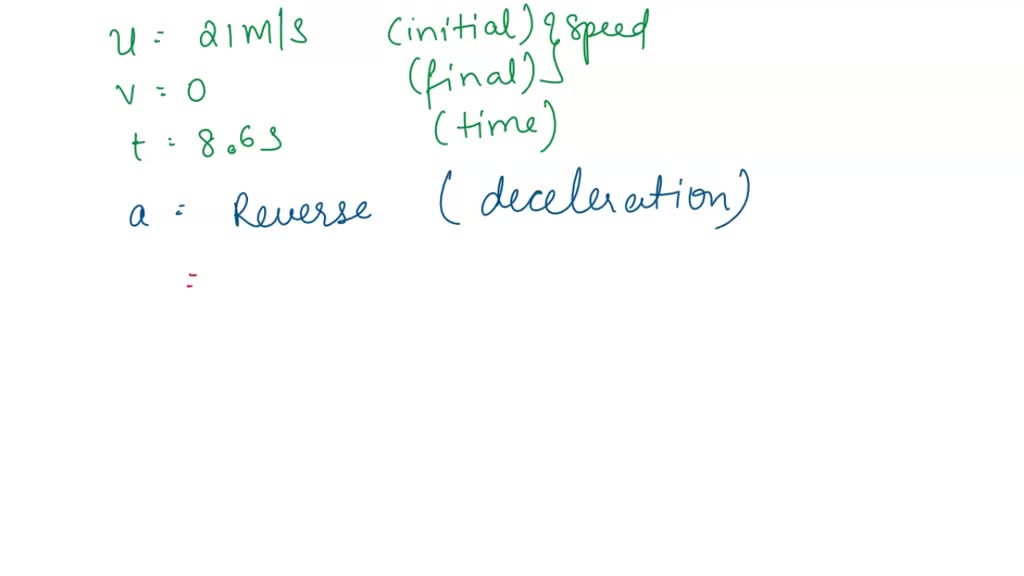 u = 21 m/s (initial) } speed
v = 0 (final)
t = 8.6s (time)
a = Reverse (deceleration)
=